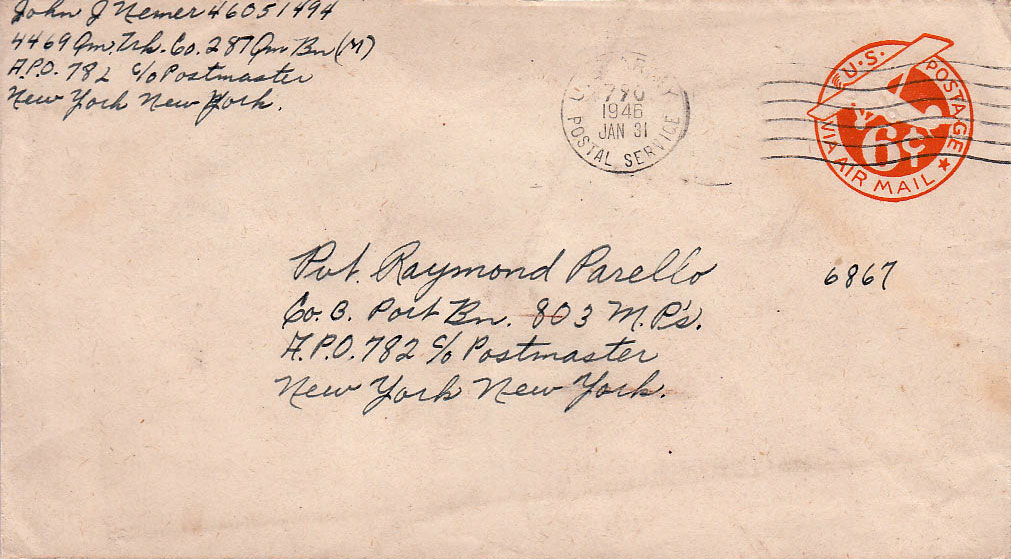 John J Nemer 46051494
4469 Qm. Trk. Co. 287 Qm Bn (M)
A.P.O. 782 c/o Postmaster
New York New York.
U.S. ARMY
1946
JAN 31
POSTAL SERVICE
U.S. POSTAGE
6¢
VIA AIR MAIL
Pvt. Raymond Parello
6867
Co. B. Port Bn. 803 M.P's.
A.P.O. 782 c/o Postmaster
New York New York.